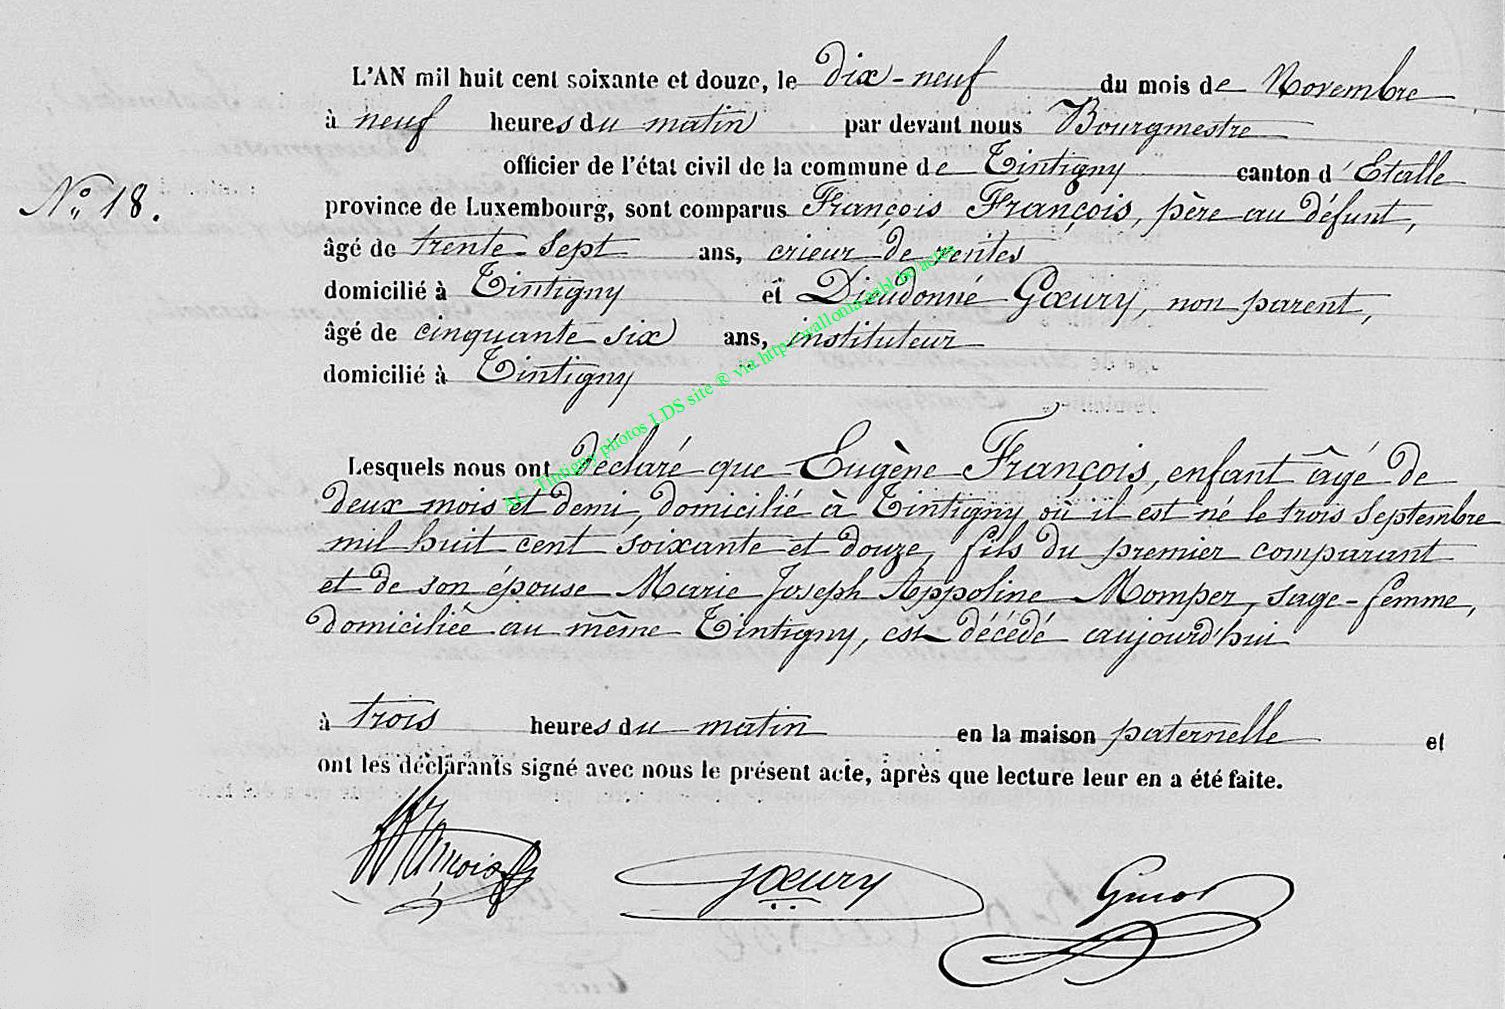 L'AN mil huit cent soixante et douze, le dix-neuf du mois de Novembre
à neuf heures du matin par devant nous Bourgmestre
officier de l'état civil de la commune de Tintigny canton d'Etalle
N° 18.
province de Luxembourg, sont comparus François François, père au défunt,
âgé de trente-sept ans, crieur de ventes
domicilié à Tintigny et Dieudonné Gœury, non parent,
âgé de cinquante-six ans, instituteur
domicilié à Tintigny
AC Tintigny photos LDS site ® via http://wallonia-asbl.be/actes
Lesquels nous ont déclaré que Eugène François, enfant âgé de
deux mois et demi, domicilié à Tintigny où il est né le trois Septembre
mil huit cent soixante et douze, fils du premier comparant
et de son épouse Marie Joseph Appoline Momper, sage-femme,
domiciliée au même Tintigny, est décédé aujourd'hui
à trois heures du matin en la maison paternelle et
ont les déclarants signé avec nous le présent acte, après que lecture leur en a été faite.
François Gœury